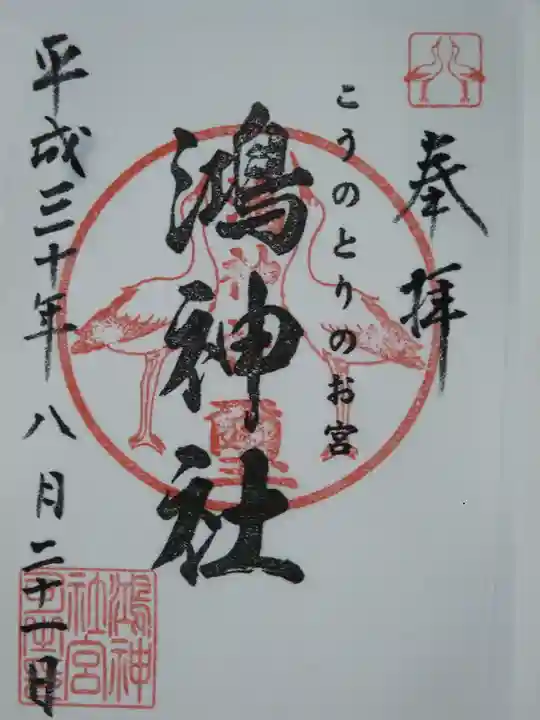 奉拝
こうのとりのお宮
鴻神社
平成三十年八月二十一日
鴻神
社宮